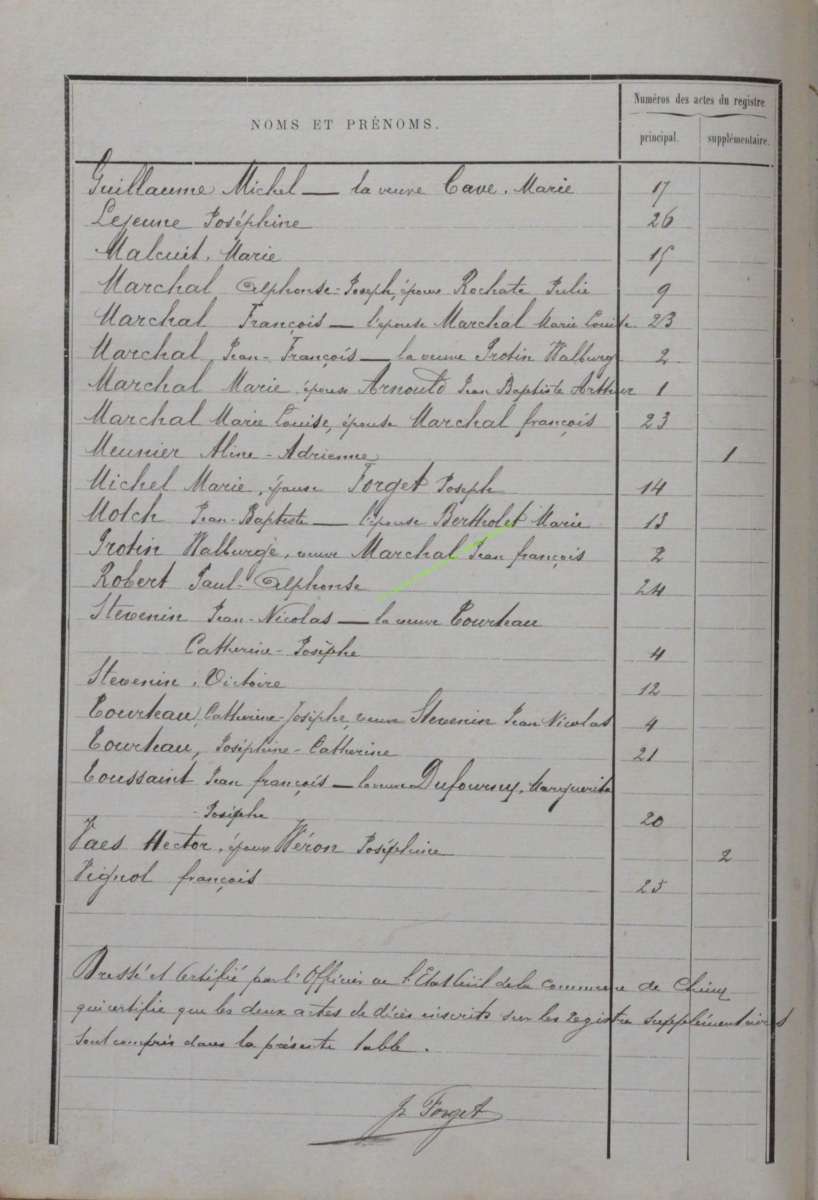 NOMS ET PRÉNOMS.
Numéros des actes du registre
principal.
supplémentaire.
Guillaume Michel — la veuve Cave, Marie 17
Lejeune Joséphine 26
Malcuit, Marie 15
Marchal Alphonse-Joseph, époux Rochate Julie 9
Marchal François — l'épouse Marchal Marie Louise 23
Marchal, Jean-François — la veuve Protin Walburge 2
Marchal Marie, épouse Arnould Jean Baptiste Arthur 1
Marchal Marie Louise, épouse Marchal françois 23
Meunier Aline-Adrienne 1
Michel Marie, épouse Forget Joseph 14
Molch Jean-Baptiste — l'épouse Bertholet Marie 13
Protin Walburge, veuve Marchal Jean françois 2
Robert Paul-Alphonse 24
Stevenin Jean-Nicolas — la veuve Tourteau
Catherine-Josèphe 4
Stevenin, Victoire 12
Tourteau, Catherine-Josèphe, veuve Stevenin Jean Nicolas 4
Tourteau, Joséphine-Catherine 21
Toussaint Jean françois — la veuve Dufourny, Marguerite
-Josèphe 20
Vaes Hector, époux Wéron Joséphine 2
Vignol françois 25
Dressé et certifié par l'Officier de l'Etat Civil de la commune de
qui certifie que les deux actes de décès inscrits sur les registres supplémentaires
sont compris dans la présente table.
J. Forget